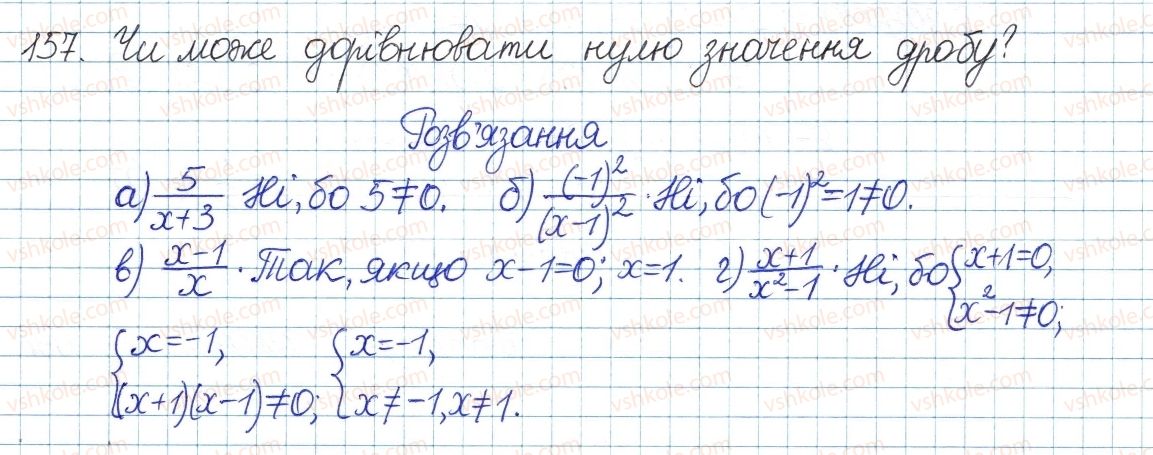 157. Чи може дорівнювати нулю значення дробу?
Розв'язання
а) 5/(x+3) Ні, бо 5≠0. б) (-1)²/(x-1)². Ні, бо (-1)²=1≠0.
в) (x-1)/x. Так, якщо x-1=0; x=1. г) (x+1)/(x²-1). Ні, бо {x+1=0, x²-1≠0;
{x=-1, (x+1)(x-1)≠0; {x=-1, x≠-1, x≠1.
vshkole.com